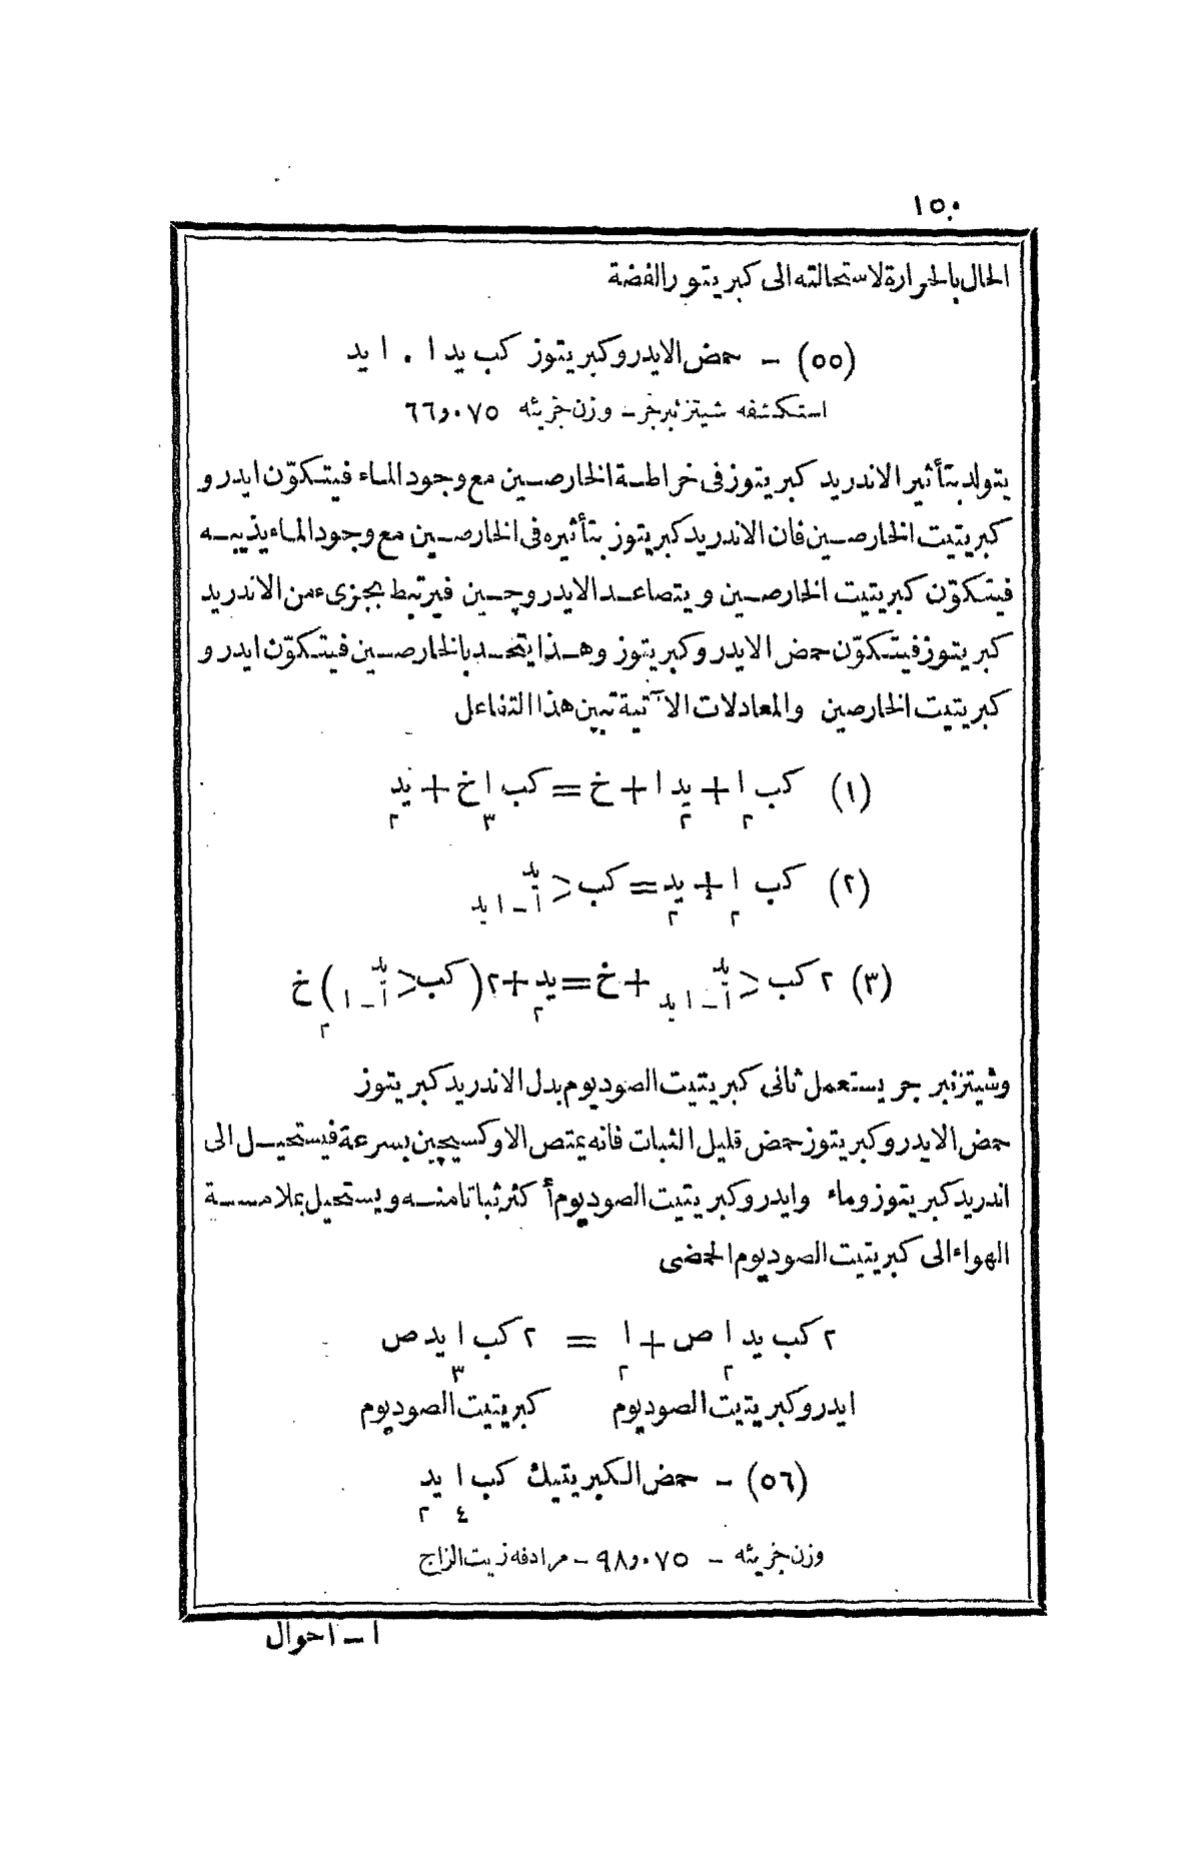 ١٥٠
الحال بالحرارة لاستحالته الى كبريتور الفضة
(٥٥) – حمض الايدروكبريتوز كب يد ا . ا يد
استكشفه شيتزنبرجر – وزن جزيئه ٦٦٫٠٧٥
يتولد بتأثير الاندريد كبريتوز فى خراطة الخارصين مع وجود الماء فيتكوّن ايدرو
كبريتيت الخارصين فان الاندريد كبريتوز بتأثيره فى الخارصين مع وجود الماء يذيبه
فيتكوّن كبريتيت الخارصين ويتصاعد الايدروچين فيرتبط بجزىء من الاندريد
كبريتوز فيتكوّن حمض الايدروكبريتوز وهذا يتحد بالخارصين فيتكوّن ايدرو
كبريتيت الخارصين والمعادلات الآتية تبين هذا التفاعل
(١) كب ا + يد ا + خ = كب ا خ + يد
٢ ٢ ٣ ٢
(٢) كب ا + يد = كب < يد ا – ا يد
٢ ٢
(٣) ٢ كب < يد ا – ا يد + خ = يد + ٢ (كب < يد ا – ا) خ
٢ ٢
وشيتزنبرجر يستعمل ثانى كبريتيت الصوديوم بدل الاندريد كبريتوز
حمض الايدروكبريتوز حمض قليل الثبات فانه يمتص الاوكسيچين بسرعة فيستحيل الى
اندريد كبريتوز وماء وايدروكبريتيت الصوديوم أكثر ثباتا منه ويستحيل بملامسة
الهواء الى كبريتيت الصوديوم الحمضى
٢ كب يد ا ص + ا = ٢ كب ا يد ص
٢ ٢ ٣
ايدروكبريتيت الصوديوم كبريتيت الصوديوم
(٥٦) – حمض الكبريتيك كب ا يد
٤ ٢
وزن جزيئه – ٩٨٫٠٧٥ – مرادفه زيت الزاج
ا – احوال